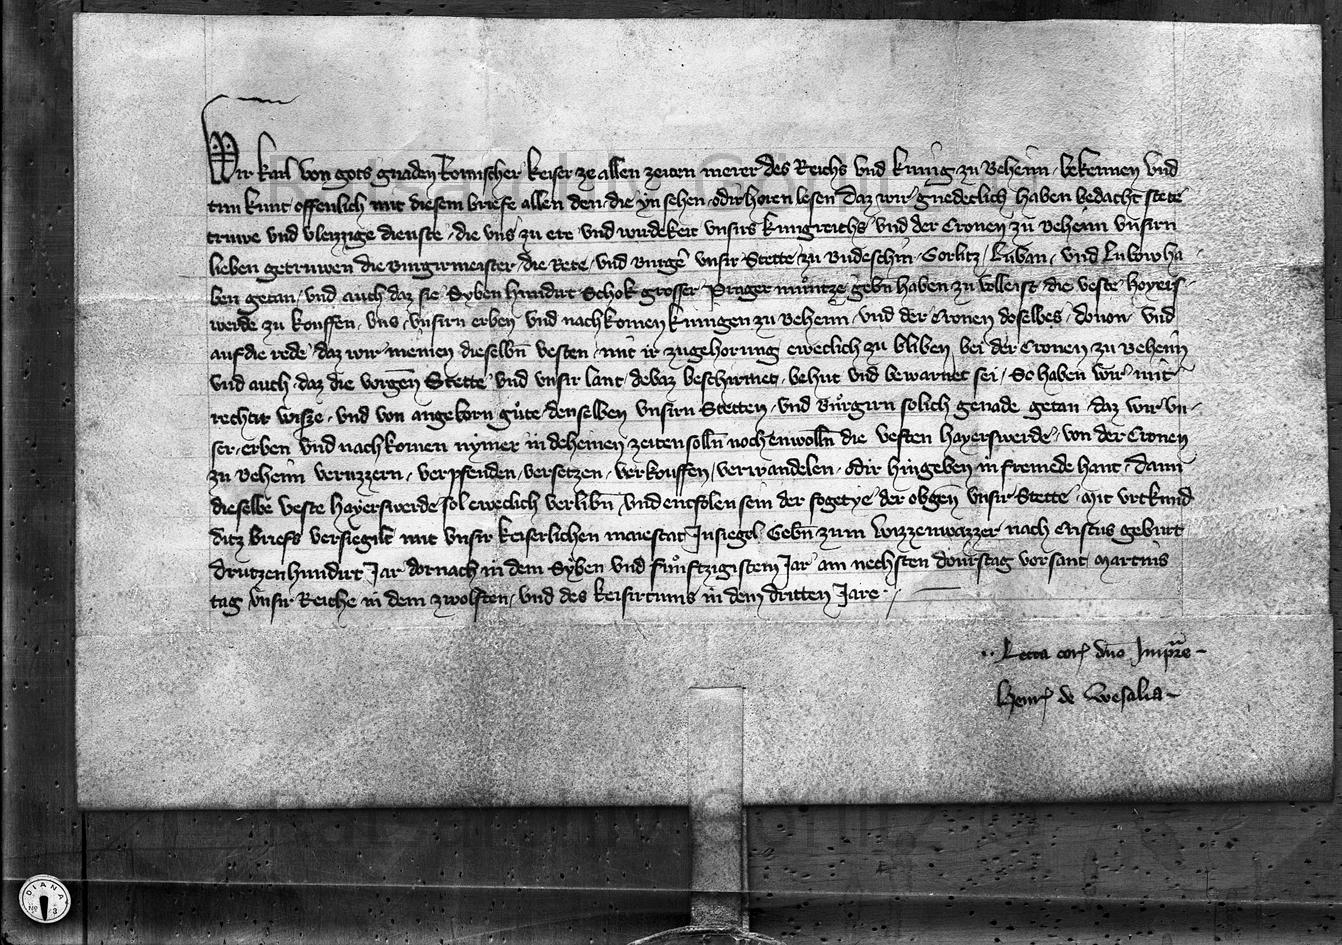 Wir karl von gots gnaden Romischer keiser ze allen zeiten merer des Reichs vnd kunig zu Beheim bekennen vnd
tun kunt offenlich mit diesem briefe allen den die yn sehen odir horen lesen daz wir gnedeclich haben bedacht stete
truwe vnd vleizzige dienste die vns zu ere vnd wirdekeit vnsirs kungreichs vnd der Cronen zu Beheim vnsirn
lieben getruwen die Burgirmeister die Rete vnd Burgere vnsir Stette zu Budeschin Gorlitz Luban vnd Lubow ha
ben getan vnd auch daz sie Syben hundirt Schok grosser Prager muntze gebn haben zu volleist die veste hoyers
werde zu kouffen vns vnsirn erben vnd nachkomen kunigen zu Beheim vnd der Cronen doselbes douon vnd
auf die rede daz wir meinen dieselbn vesten mit ir zugehorung eweclich zu bliben bei der Cronen zu Beheim
vnd auch daz die vorgen Stette vnd vnsir lant debaz beschirmet behut vnd bewarnet sei So haben wir mit
rechter wisze vnd von angeborn gute denselben vnsirn Stetten vnd Burgirn solich genade getan daz wir vn
ser erben vnd nachkomen nymer in deheinen zeiten solln noch enwolln die vesten hayerswerde von der Cronen
zu Beheim veruzzern verpfenden versetzen verkouffen verwandelen odir hingeben in fremede hant Dann
dieselbe veste hayerswerde sol eweclich verlibn vnd entfolen sein der fogetye der obgen vnsir Stette Mit vrtkund
ditz briefs versiegilt mit vnsir keiserlichen maiestat Jnsiegel Gebn zum Wizzenwazzer nach Cristus geburt
drutzenhundirt Jar dornach in dem Syben vnd funftzigistem Jar am nechsten donirstag vor sant Martins
tag vnsir Reiche in dem zwolften vnd des keisirtums in dem dritten Jare
Lecta cor dno Impre
Henr de Wesalia
Ratsarchiv Görlitz
Ratsarchiv Görlitz
DIANA